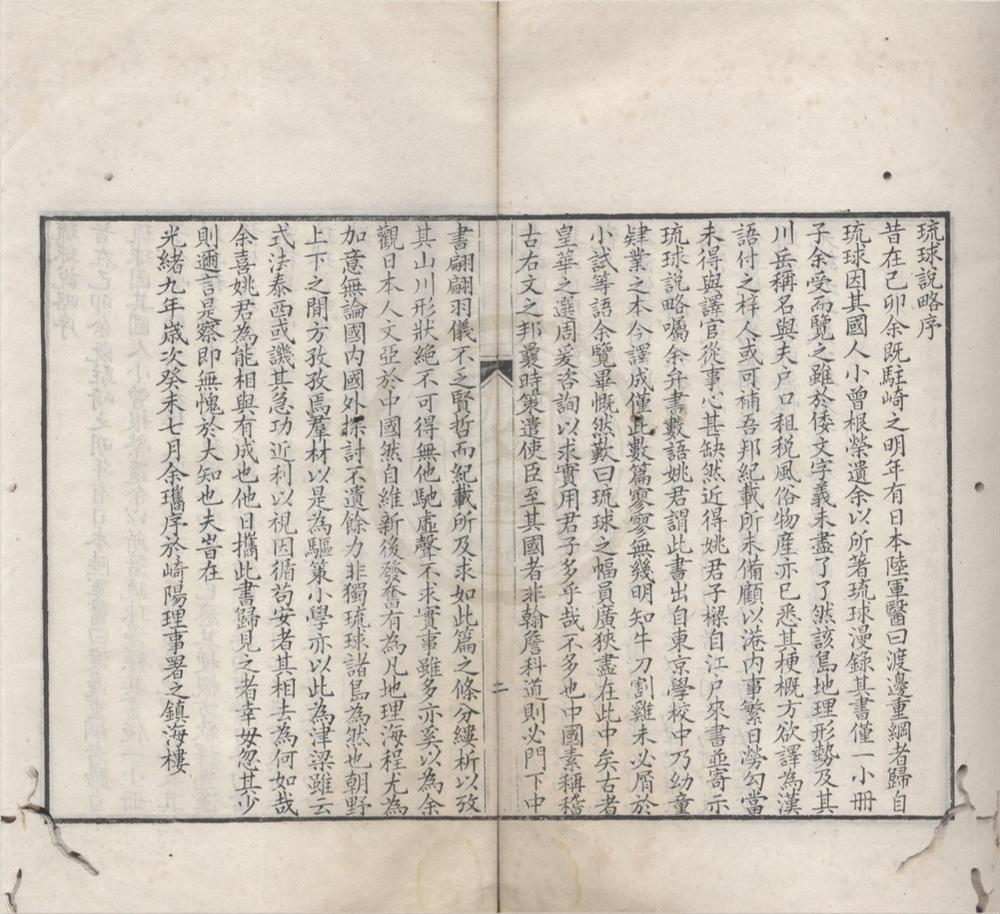 琉球說略序
昔在己卯余既駐崎之明年有日本陸軍醫曰渡邊重綱者歸自
琉球因其國人小曾根榮遺余以所著琉球漫錄其書僅一小冊
子余受而覽之雖於倭文字義未盡了了然該島地理形勢及其
川岳稱名與夫户口租税風俗物產亦已悉其梗概方欲譯為漢
語付之梓人或可補吾邦紀載所未備顧以港内事繁日勞勾當
未得與譯官從事心甚缺然近得姚君子樑自江户來書並寄示
琉球說略囑余弁書數語姚君謂此書出自東京學校中乃幼童
肄業之本今譯成僅此數篇寥寥無幾明知牛刀割雞未必屑於
小試等語余覽畢慨然歎曰琉球之幅員廣狹盡在此中矣古者
皇華之選周爰咨詢以求實用君子多乎哉不多也中國素稱稽
古右文之邦曩時策遣使臣至其國者非翰詹科道則必門下中
二
書翩翩羽儀不乏賢哲而紀載所及求如此篇之條分縷析以攷
其山川形狀絶不可得無他馳虛聲不求實事雖多亦奚以為余
觀日本人文亞於中國然自維新後發奮有為凡地理海程尤為
加意無論國内國外探討不遺餘力非獨琉球諸島為然也朝野
上下之間方孜孜焉羣材以是為驅策小學亦以此為津梁雖云
式法泰西或譏其急功近利以視因循苟安者其相去為何如哉
余喜姚君為能相與有成也他日攜此書歸見之者幸毋忽其少
則邇言是察即無愧於大知也夫豈在
光緒九年歲次癸未七月余瓗序於崎陽理事署之鎮海樓